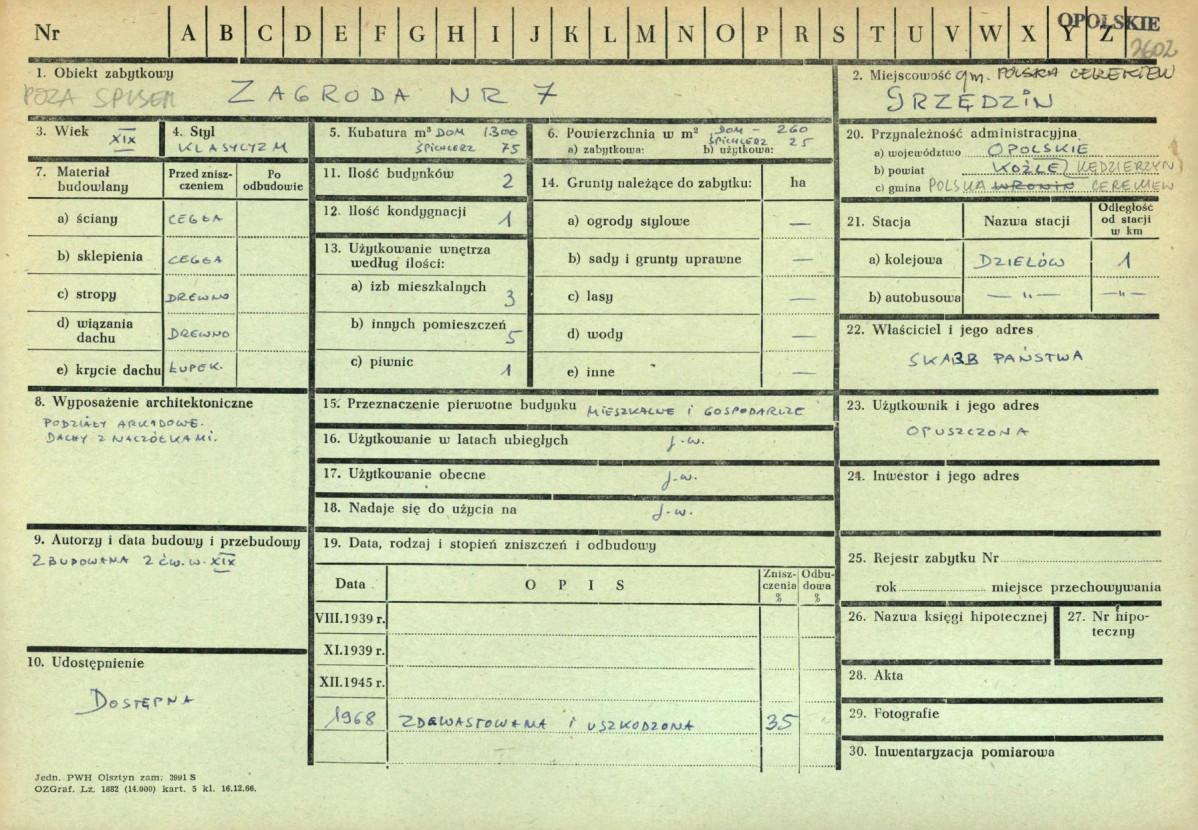 OPOLSKIE
Nr A B C D E F G H I J K L M N O P R S T U V W X Y Z
2602
1. Obiekt zabytkowy
POZA SPISEM ZAGRODA NR 7
2. Miejscowość gm. POLSKA CEREKIEW
GRZĘDZIN
3. Wiek XIX
4. Styl
KLASYCYZM
5. Kubatura m³ DOM 1300
ŚPICHLERZ 75
6. Powierzchnia w m² DOM - 260
ŚPICHLERZ 25
a) zabytkowa: b) użytkowa:
20. Przynależność administracyjna
a) województwo OPOLSKIE
b) powiat KOŹLE KĘDZIERZYN
c) gmina POLSKA WRONIN CEREKIEW
7. Materiał budowlany
Przed znisz-
czeniem
Po
odbudowie
a) ściany CEGŁA
b) sklepienia CEGŁA
c) stropy DREWNO
d) wiązania
dachu DREWNO
e) krycie dachu ŁUPEK.
11. Ilość budynków 2
12. Ilość kondygnacji 1
13. Użytkowanie wnętrza
według ilości:
a) izb mieszkalnych 3
b) innych pomieszczeń 5
c) piwnic 1
14. Grunty należące do zabytku: ha
a) ogrody stylowe —
b) sady i grunty uprawne —
c) lasy —
d) wody —
e) inne —
21. Stacja
Nazwa stacji
Odległość
od stacji
w km
a) kolejowa DZIELÓW 1
b) autobusowa — „ — — „ —
22. Właściciel i jego adres
SKARB PAŃSTWA
8. Wyposażenie architektoniczne
PODZIAŁY ARKADOWE.
DACHY Z NACZÓŁKAMI.
15. Przeznaczenie pierwotne budynku MIESZKALNE i GOSPODARCZE
16. Użytkowanie w latach ubiegłych j.w.
17. Użytkowanie obecne j.w.
18. Nadaje się do użycia na j.w.
23. Użytkownik i jego adres
OPUSZCZONA
24. Inwestor i jego adres
9. Autorzy i data budowy i przebudowy
ZBUDOWANA 2 ĆW. W. XIX
19. Data, rodzaj i stopień zniszczeń i odbudowy
Data
O P I S
Znisz-
czenia
%
Odbu-
dowa
%
VIII.1939 r.
XI.1939 r.
XII.1945 r.
1968 ZDEWASTOWANA i USZKODZONA 35
25. Rejestr zabytku Nr
rok miejsce przechowywania
26. Nazwa księgi hipotecznej
27. Nr hipo-
teczny
10. Udostępnienie
DOSTĘPNA
28. Akta
29. Fotografie
30. Inwentaryzacja pomiarowa
Jedn. PWH Olsztyn zam: 3991 S
OZGraf. Lz. 1882 (14.000) kart. 5 kl. 16.12.66.